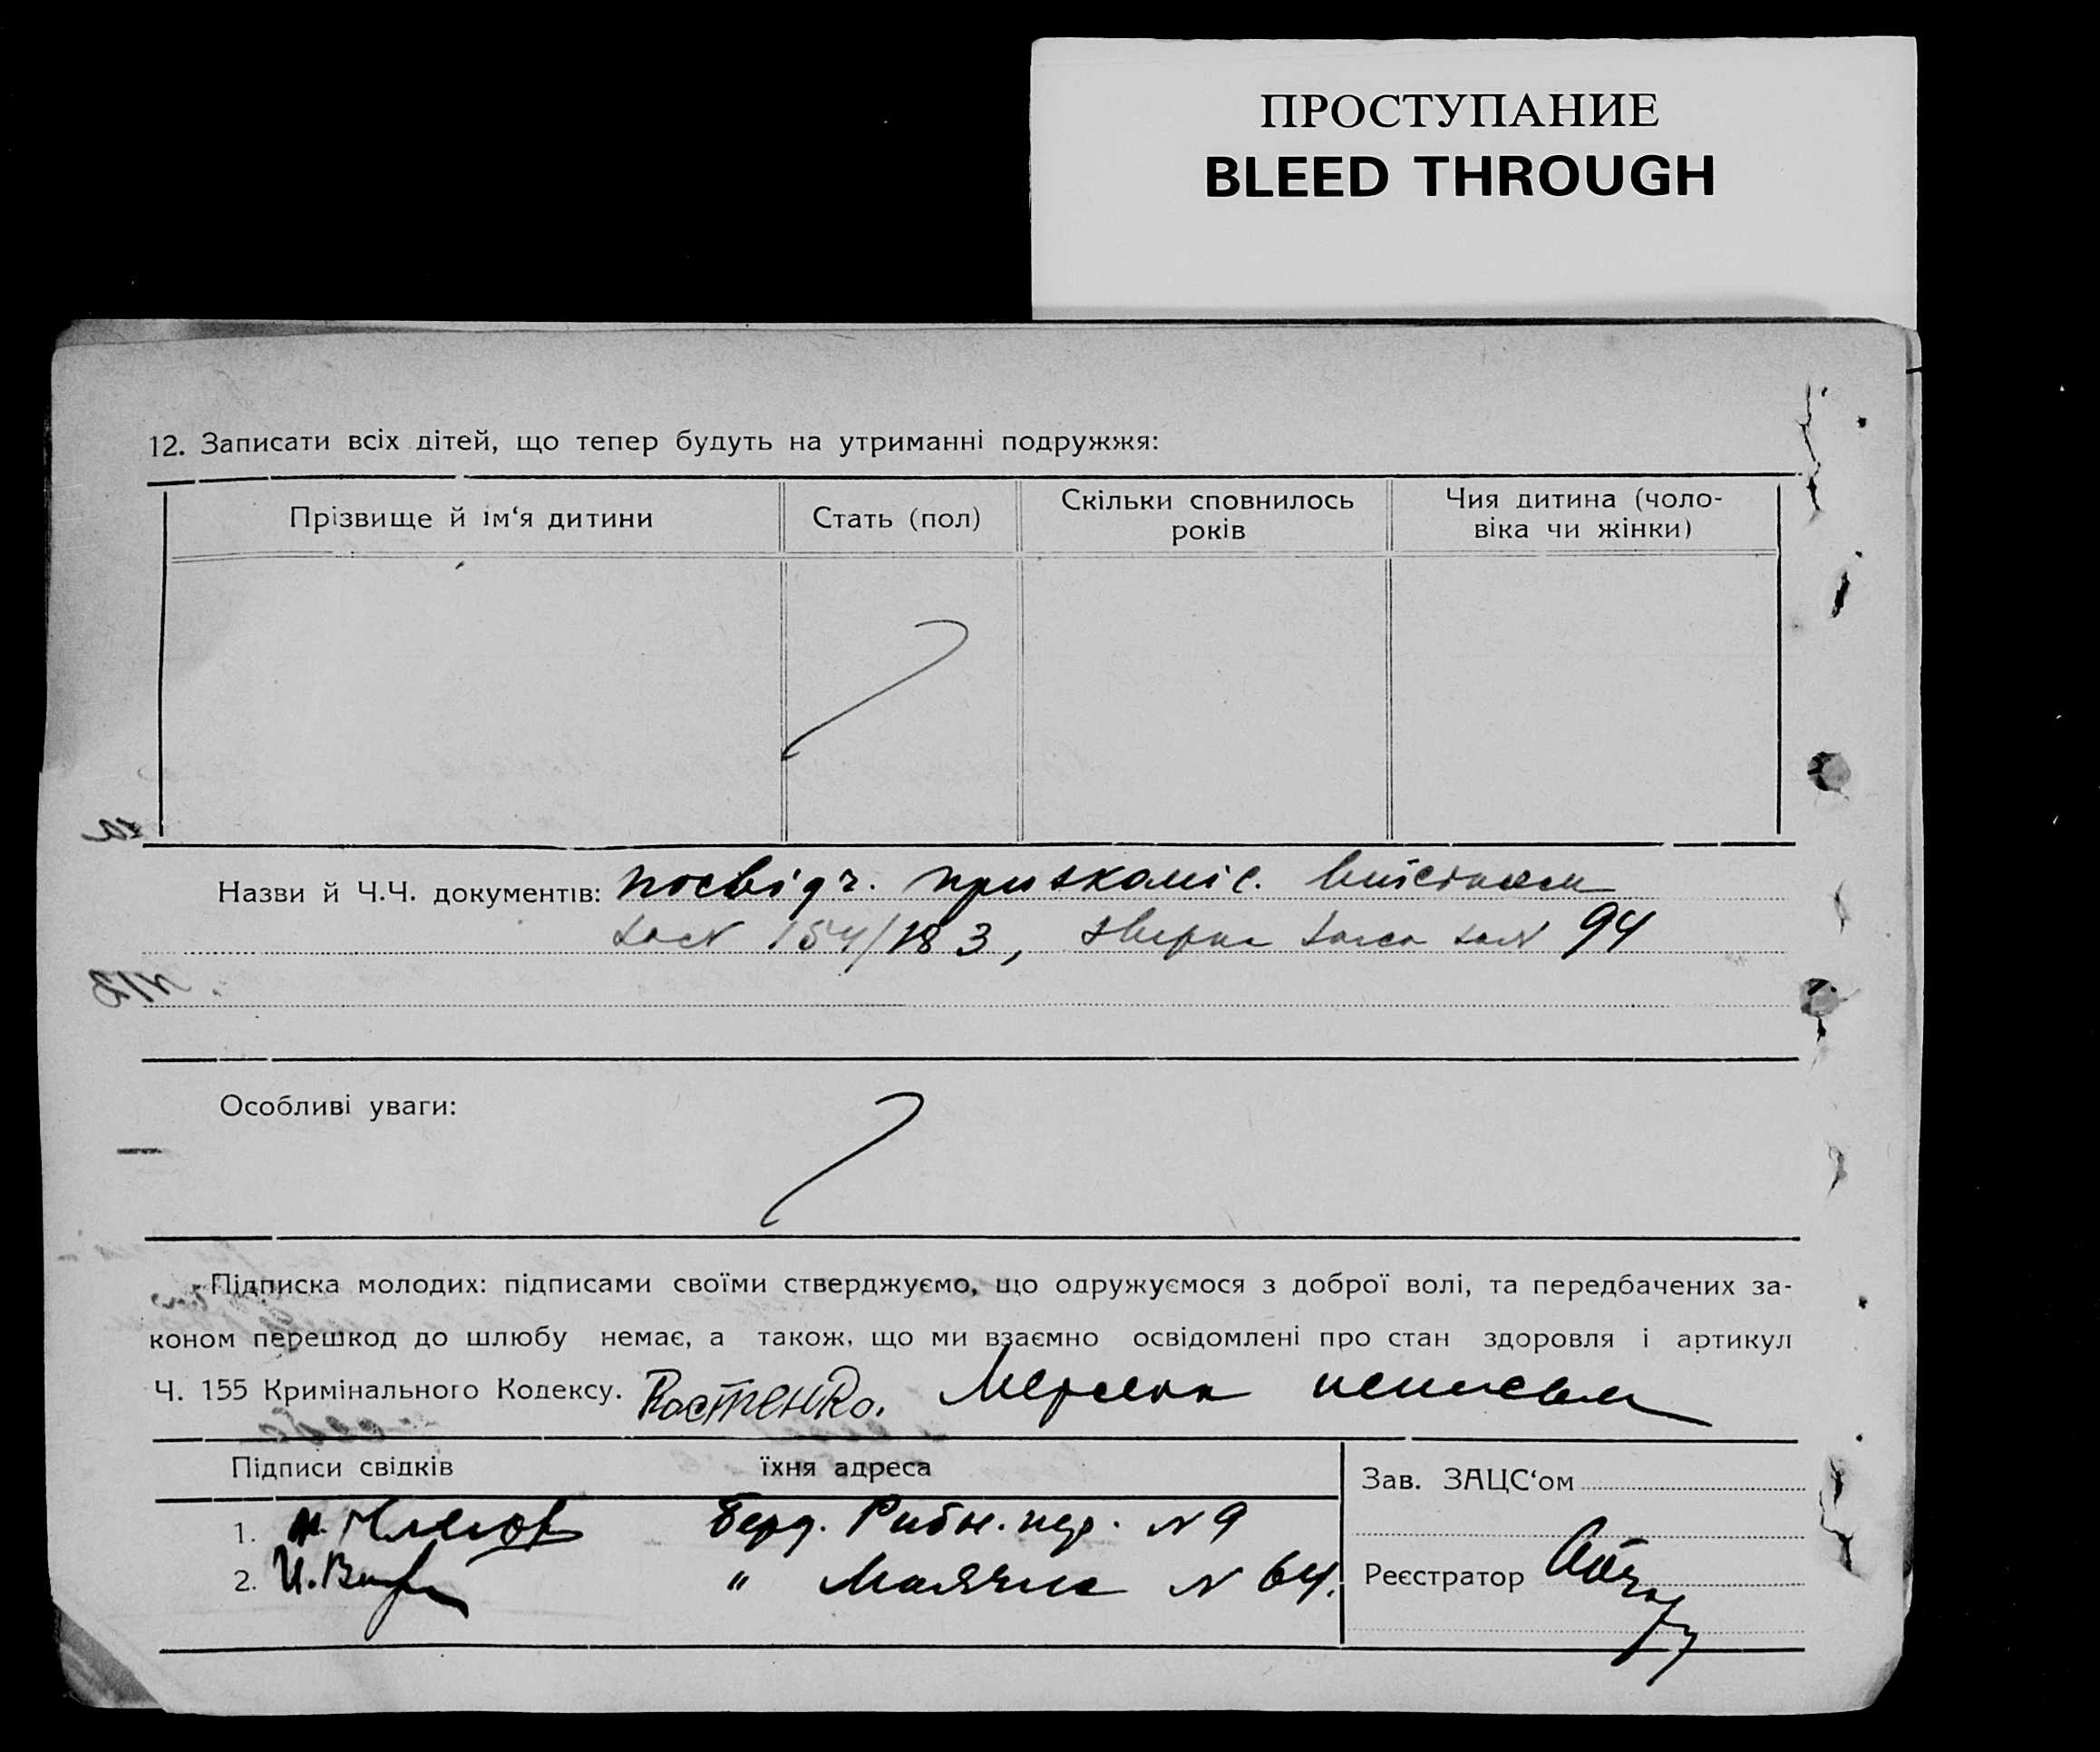 ПРОСТУПАНИЕ
BLEED THROUGH
12. Записати всіх дітей, що тепер будуть на утриманні подружжя:
Прізвище й ім‘я дитини
Стать (пол)
Скільки сповнилось
років
Чия дитина (чоло-
віка чи жінки)
Назви й Ч.Ч. документів: посвідч.
154/183, 94
Особливі уваги:
Підписка молодих: підписами своїми стверджуємо, що одружуємося з доброї волі, та передбачених за-
коном перешкод до шлюбу немає, а також, що ми взаємно освідомлені про стан здоровля і артикул
Ч. 155 Кримінального Кодексу. Костенко.
Підписи свідків
їхня адреса
Зав. ЗАЦС‘ом
1. Берд. Рибн. пер. N 9
2. " Маячна N 64.
Реєстратор